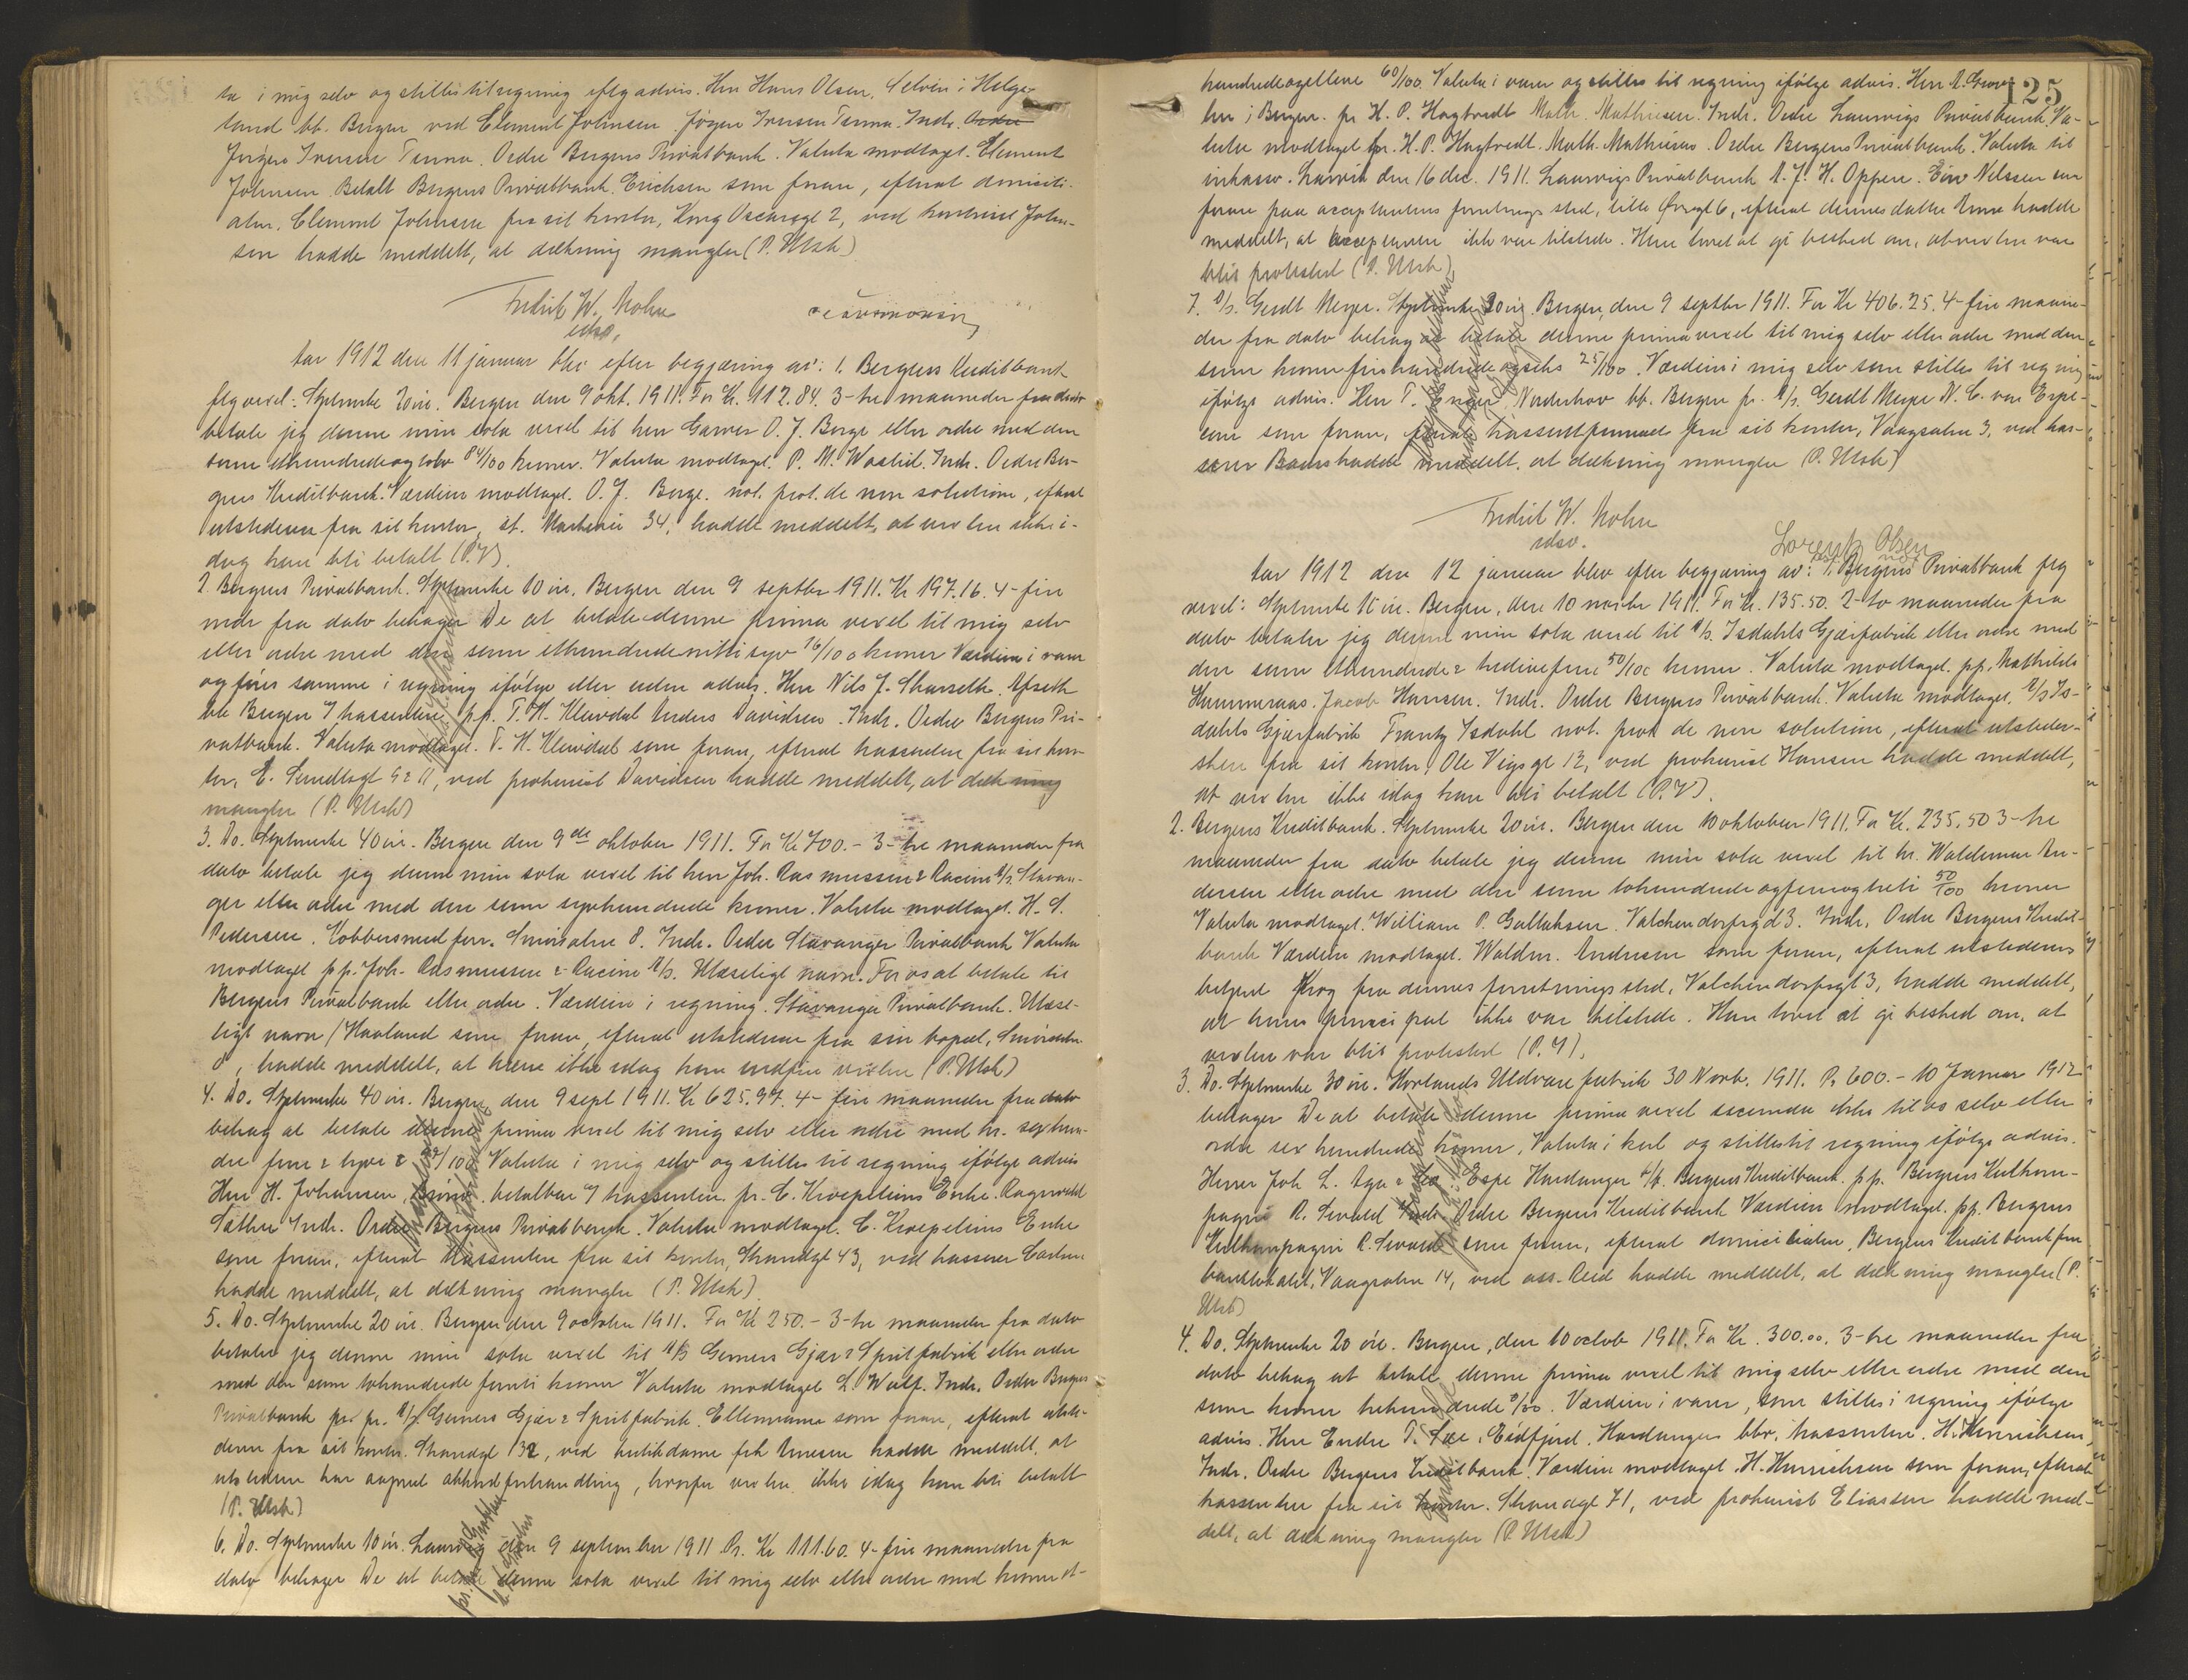 ta i mig selv og stilles til regning eftg advis. Herr Hans Olsen, Selvin i Helge-
land bb. Bergen ved Clement Johnsen. Jörgen Iversen Tenna. Indr. Ordre
Jörgen Iversen Tenna. Ordre Bergens Privatbank. Valuta modtaget. Clement
Johnsen Betalt Bergens Privatbank. Erichsen som foran, efterat domicili-
atar. Clement Johnsen fra sit kontor, Kong Oscarsgt 2, ved John-
sen hadde meddelt, at dækning mangler (P. Utsk)
Fredrik W. Mohn
edsv.
Aar 1912 den 11 januar blev efter begjæring av: 1. Bergens Kreditbank
flg vexel: Stplmerke 20 öre. Bergen den 9 okt. 1911. For Kr. 112.84. 3-tre maaneder fra dato
betale jeg denne min sola vexel til herr Garver O. J. Berge eller ordre med den
sum ethundredeogtolv 84/100 kroner. Valuta modtaget. P. M. Indr. Ordre Ber-
gens Kreditbank. Værdien modtaget. O. J. Berge. not. prot. de non solutione, efterat
utstederen fra sit kontor, st. 34, hadde meddelt, at vexlen ikke i-
dag kan bli betalt (P.V).
2. Bergens Privatbank. Stplmerke 10 öre. Bergen den 9 septbr 1911. Kr 197.16. 4-fire
mdr fra dato behager De at betale denne prima vexel til mig selv
eller ordre med den sum ethundrede nitti syv 16/100 kroner Værdien i varer
og föres samme i regning ifölge eller uden advis. Herr Nils J. Afseth
bb Bergen pp. T. H. Kleivdal Anders Davidsen. Indr. Ordre Bergens Pri-
vatbank. Valuta modtaget. T. H. Kleivdal som foran, efterat kassenten fra sit kon-
tor, E. Sundtsgt 9 & 11, ved prokurist Davidsen hadde meddelt, at dækning
mangler (P. Utsk)
3. Do. Stplmerke 40 öre. Bergen den 9de oktober 1911. For Kr 700.- 3-tre maaneder fra
dato betale jeg denne min sola vexel til herr Joh. Rasmussen & Racine A/S. Stavan-
ger eller ordre med den sum syvhundrede kroner. Valuta modtaget. H. S.
Pedersen. Kobbersmed forr. 8. Indr. Ordre Stavanger Privatbank Valuta
modtaget pp. Joh. Rasmussen & Racine A/S. Ulæseligt navn. For os at betale til
Bergens Privatbank eller ordre. Værdien i regning. Stavanger Privatbank. Ulæse-
ligt navn / Haaland som foran, efterat utstederen fra sin bopæl,
8, hadde meddelt, at han ikke idag kan indfri vexlen (P. Utsk)
4. Do. Stplmerke 40 öre. Bergen den 9 sept 1911. Kr 625.97. 4-fire maaneder fra dato
behag at betale denne prima vexel til mig selv eller ordre med kr. sexhun-
dre fem & tyve & 97/100 Valuta i mig selv og stilles til regning ifölge advis
Herr H. Johansen, betalbar kassenten. pr. C. Kroepeliens Enke. Ragnvald
Sæthre Indr. Ordre Bergens Privatbank. Valuta modtaget. C. Kroepeliens Enke
som foran, efterat kassenten fra sit kontor, Strandgt 43, ved kasserer
hadde meddelt, at dækning mangler (P. Utsk).
5. Do. Stplmerke 20 öre. Bergen den 9 octobre 1911. For Kr 250.- 3-tre maaneder fra dato
betaler jeg denne min sola vexel til A/S Gerners Gjær & Spritfabrik eller ordre
med den sum tohundrede femti kroner Valuta modtaget L. Wulf. Indr. Ordre Bergens
Privatbank pr. A/S Gerners Gjær & Spritfabrik. Ellermann som foran, efterat utste-
deren fra sit kontor. Strandgt 132, ved butikdame frk Arnesen hadde meddelt, at
utstederen har akkordforhandling, hvorfor vexlen ikke idag kan bli betalt
(P. Utsk)
6. Do. Stplmerke 10 öre. Laurvig den 9 september 1911 Pr. Kr 111.60. 4-fire maaneder fra
dato behager De at betale denne sola vexel til mig selv eller ordre med kroner et-
125
hundredeogelleve 60/100 Valuta i varer og stilles til regning ifölge advis. Herr A.
i Bergen. pr H. P. Hagtvedt Math. Mathiesen. Indr. Ordre Laurvigs Privatbank. Va-
luta modtaget pr. H. P. Hagtvedt. Math. Mathiesen. Ordre Bergens Privatbank. Valuta til
inkasso. Larvik den 16 dec. 1911. Laurvigs Privatbank A. J. H. Oppen. Nilssen som
foran paa acceptantens forretningssted, lille 6, efterat dennes datter hadde
meddelt, at acceptanten ikke var tilstede. Hun lovet at gi besked om, at vexlen var
blit protestert (P. Utsk)
7. A/S. Gerdt Meyer. Stplmerke 20 öre. Bergen, den 9 septbr 1911. For Kr 406.25. 4-fire maane-
der fra dato behag at betale denne prima vexel til mig selv eller ordre med den
sum kroner firehundrede og seks 25/100. Værdien i mig selv som stilles til regning
ifölge advis. Herr T. Enger, Norderhov bb. Bergen pr. A/S. Gerdt Meyer N. C. von Erpe-
com som foran, efterat kassenten fra sit kontor, Vaagsalm 3, ved kas-
serer hadde meddelt, at dækning mangler (P. Utsk)
Fredrik W. Mohn
edsv.
Lorentz Olsen
Aar 1912 den 12 januar blev efter begjæring av: 1. Bergens Privatbank flg
vexel: Stplmerke 10 öre. Bergen, den 10 novbr 1911. For Kr. 135.50. 2-to maaneder fra
dato betaler jeg denne min sola vexel til A/S. Isdahls Gjærfabrik eller ordre med
den sum ethundrede & trediefem 50/100 kroner. Valuta modtaget. pp. Mathilde
Hammeraas. Jacob Hansen. Indr. Ordre Bergens Privatbank. Valuta modtaget. A/S Is-
dahls Gjærfabrik Frantz Isdahl not. prot de non solutione, efterat utsteder-
sken fra sit kontor, Ole Vigs gt 12, ved prokurist Hansen hadde meddelt,
at vexlen ikke idag kan bli betalt (P.V).
2. Bergens Kreditbank. Stplmerke 20 öre. Bergen den 10 oktober 1911. For Kr. 235,50 3-tre
maaneder fra dato betale jeg denne min sola vexel til hr. Waldemar An-
dersen eller ordre med den sum tohundrede og femogtreti 50/100 kroner
Valuta modtaget. William P. Gullaksen. Valchendorfsgd 3. Indr. Ordre Bergens Kredit-
bank Værdien modtaget. Waldm. Andersen som foran, efterat utstederens
betjent Krog fra dennes forretningssted, Valchendorfsgt 3, hadde meddelt,
at hans principal ikke var tilstede. Han lovet at gi besked om, at
vexlen var blit protestert (P. V).
3. Do. Stplmerke 30 öre. Horlands Uldvarefabrik 30 Novb. 1911. Pr 600.- 10 Januar 1912
behager De at betale denne prima vexel secunda ikke til os selv eller
ordre sex hundrede kroner. Valuta i kul og stilles til regning ifölge advis.
Herrer Joh L. Aga & Co. Espe Hardanger Bergens Kreditbank. pp. Bergens Kulkom-
pagni R. Sewald Indr. Ordre Bergens Kreditbank Værdien modtaget. pp. Bergens
Kulkompagni R. Sewald som foran, efterat domiciliaten, Bergens Kreditbank fra
banklokalet, Vaagsalm 14, ved ass. Reid hadde meddelt, at dækning mangler (P.
Utsk)
4. Do. Stplmerke 20 öre. Bergen, den 10 octob 1911. For Kr. 300.00. 3-tre maaneder fra
dato behag at betale denne prima vexel til mig selv eller ordre med den
sum kroner trehundrede 0/00. Værdien i varer, som stilles i regning ifölge
advis. Herr Endre T. Sæe, Eidfjord. Hardanger kassenten. H. Hinrichsen,
Indr. Ordre Bergens Kreditbank. Værdien modtaget. H. Hinrichsen som foran, efterat
kassenten fra sit kontor. Strandgt 71, ved prokurist Eliassen hadde med-
delt, at dækning mangler (P. Utsk)